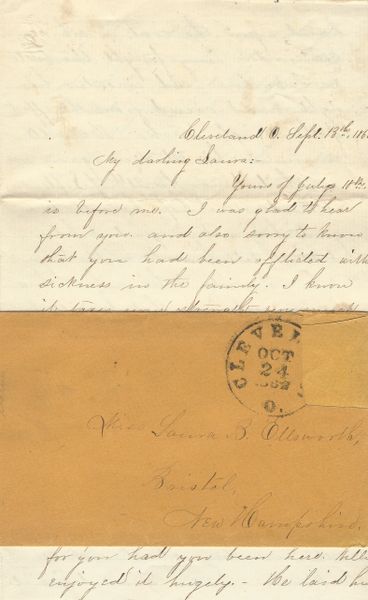 Cleveland O. Sept. 13th, 186
My darling Laura:
Yours of July 11th,
is before me. I was glad to hear
from you. and also sorry to know
that you had been afflicted with
sickness in the family. I know
strength
CLEVEL
OCT
24
1862
O.
Miss Laura B. Ellsworth,
Bristol,
New Hampshire.
for you had you been here.
enjoyed it hugely. - He laid